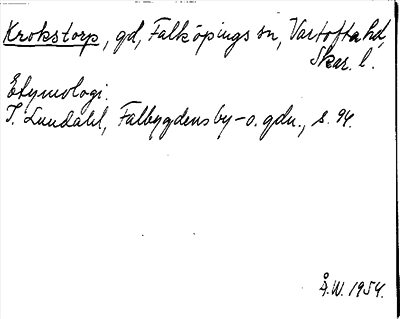 Krokstorp, gd, Falköpings sn, Vartofta hd,
Skar. l.
Etymologi.
I. Lundahl, Falbygdens by- o. gdn., s. 94.
Å.W. 1954.